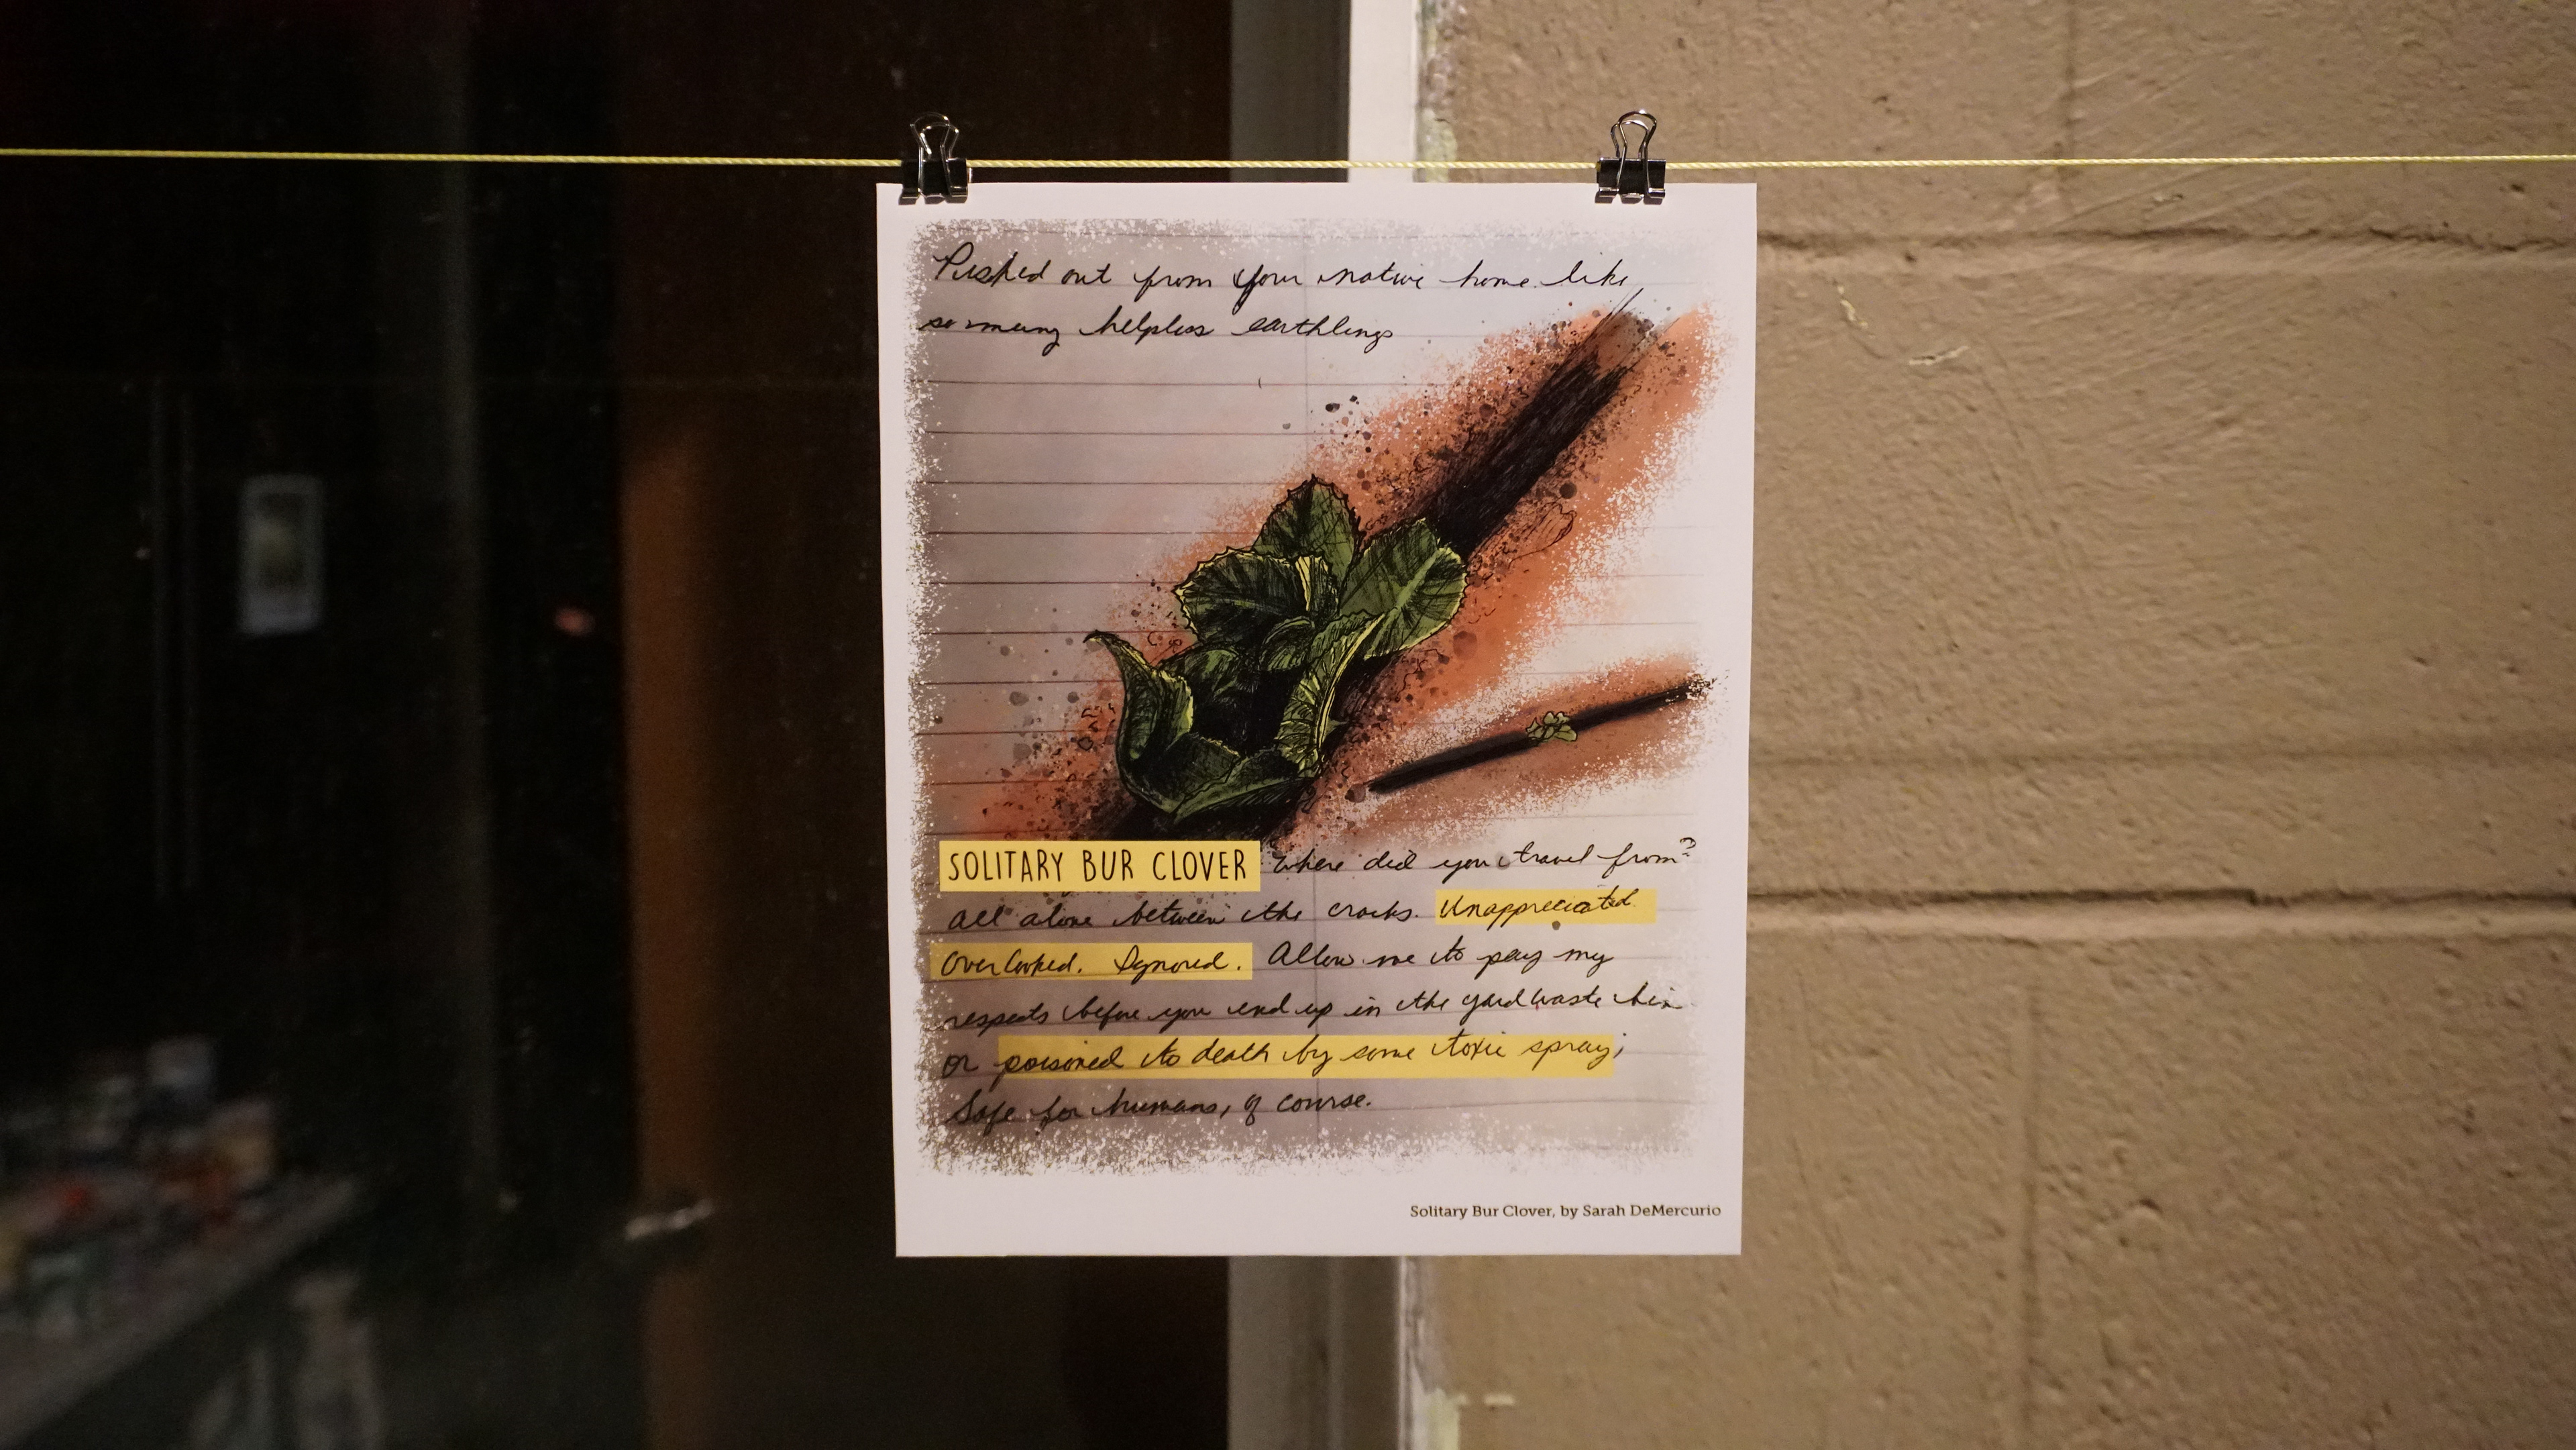 Pushed out from your native home like
so many helpless earthlings
SOLITARY BUR CLOVER Where did you travel from?
All alone between the cracks. Unappreciated.
Overlooked. Ignored. Allow me to pay my
respects before you end up in the yard waste bin
or poisoned to death by some toxic spray;
Safe for humans, of course.
Solitary Bur Clover, by Sarah DeMercurio